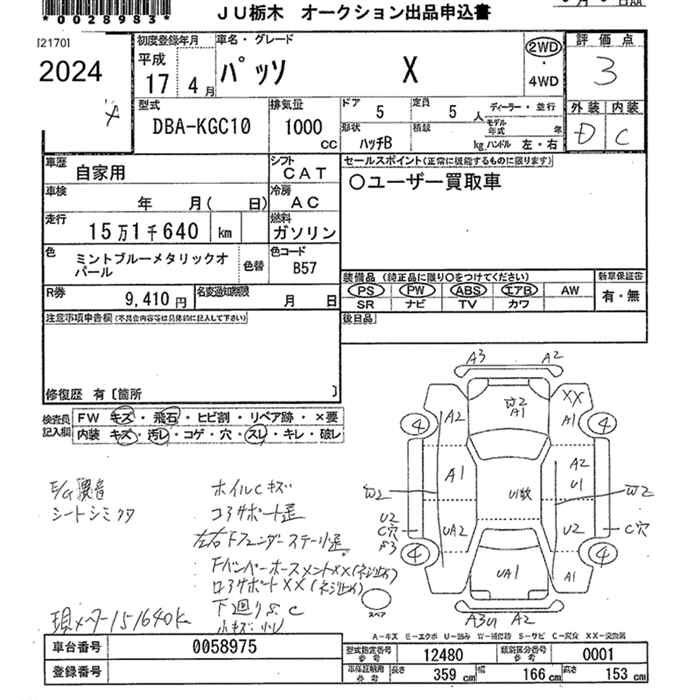 *0028983*
JU栃木 オークション出品申込書
[2170]
2024
初度登録年月
平成
17 4月
車名・グレード
パッソ X
2WD
・
4WD
評価点
3
型式
DBA-KGC10
排気量
1000
CC
ドア 5
定員 5人
ディーラー・並行
モデル年式 年
形状 ハッチB
積載 kg
ハンドル 左・右
外装 内装
D C
車歴
自家用
シフト
CAT
セールスポイント(正常に機能するものに限ります)
○ユーザー買取車
車検
年 月( 日)
冷房
AC
走行
15万1千640 km
燃料
ガソリン
色
ミントブルーメタリックオパール
色替
色コード
B57
R券
9,410円
名変通知期限
月 日
装備品 (純正品に限り○をつけてください)
新車保証書
PS PW ABS エアB AW
SR ナビ TV カワ
有・無
注意事項申告欄(不具合内容等は具体的に記入して下さい)
後日品
修復歴 有〔箇所 〕
検査員記入欄
FW キズ・飛石・ヒビ割・リペア跡・×要
内装 キズ・汚レ・コゲ・穴・スレ・キレ・破レ
E/G異音
シートシミクタ
ホイルCキズ
コアサポート歪
左右Fフェンダーステー小歪
下廻りS.C
小キズ・小U
現メーター151640k
A3 A2
A2
W2
A1
XX
A1
4
4
A1
A2
U1
W2
W2
U2
C穴
UA2
U2
C穴
4
4
UA1
A1
スペア
A3U A2
A-キズ E-エクボ U-凹み W-補修跡 S-サビ C-腐食 XX-交換済
車台番号
0058975
登録番号
型式指定番号
参考
12480
類別区分番号
参考
0001
車庫証明用
参考
長さ 359 cm
幅 166 cm
高さ 153 cm